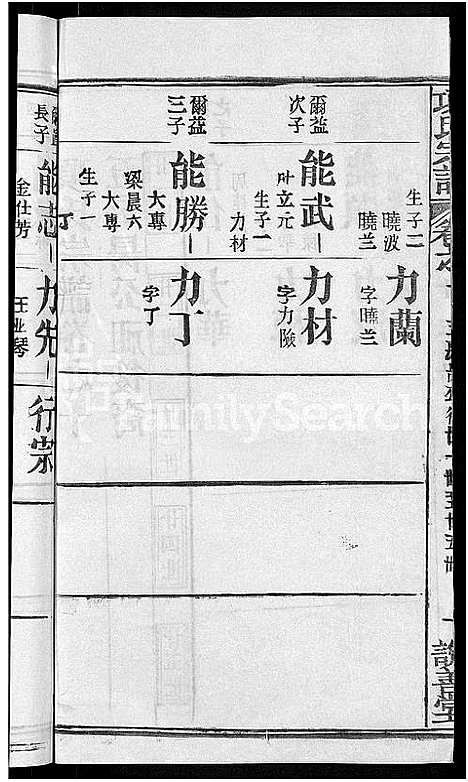 項氏宗譜
譜善堂
生子二
曉波
曉蘭
力蘭
字曉兰
爾益
次子
能武
叶立元
生子一
力材
力材
字力險
爾益
三子
能勝
大專
梁晨六
大專
生子一
丁
力丁
字丁
長子
能志
金仕芳
力先
王业琴
行宗
FamilySearch